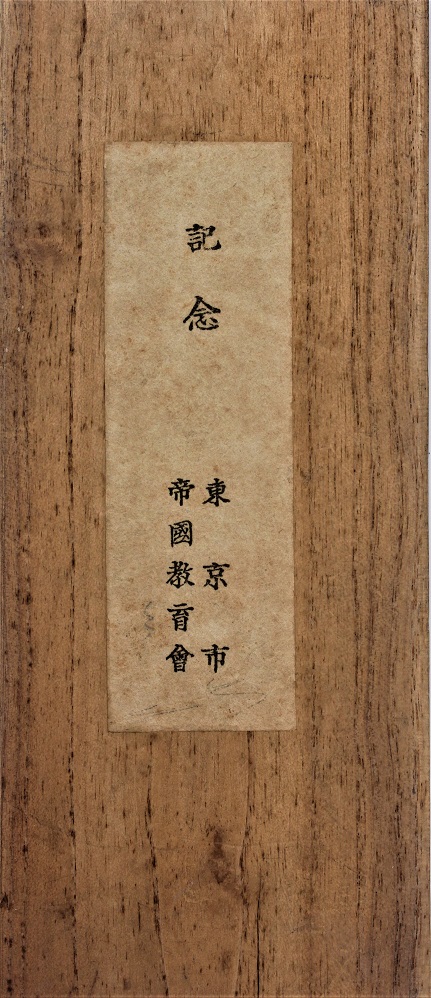 記念
東京市
帝國教育會